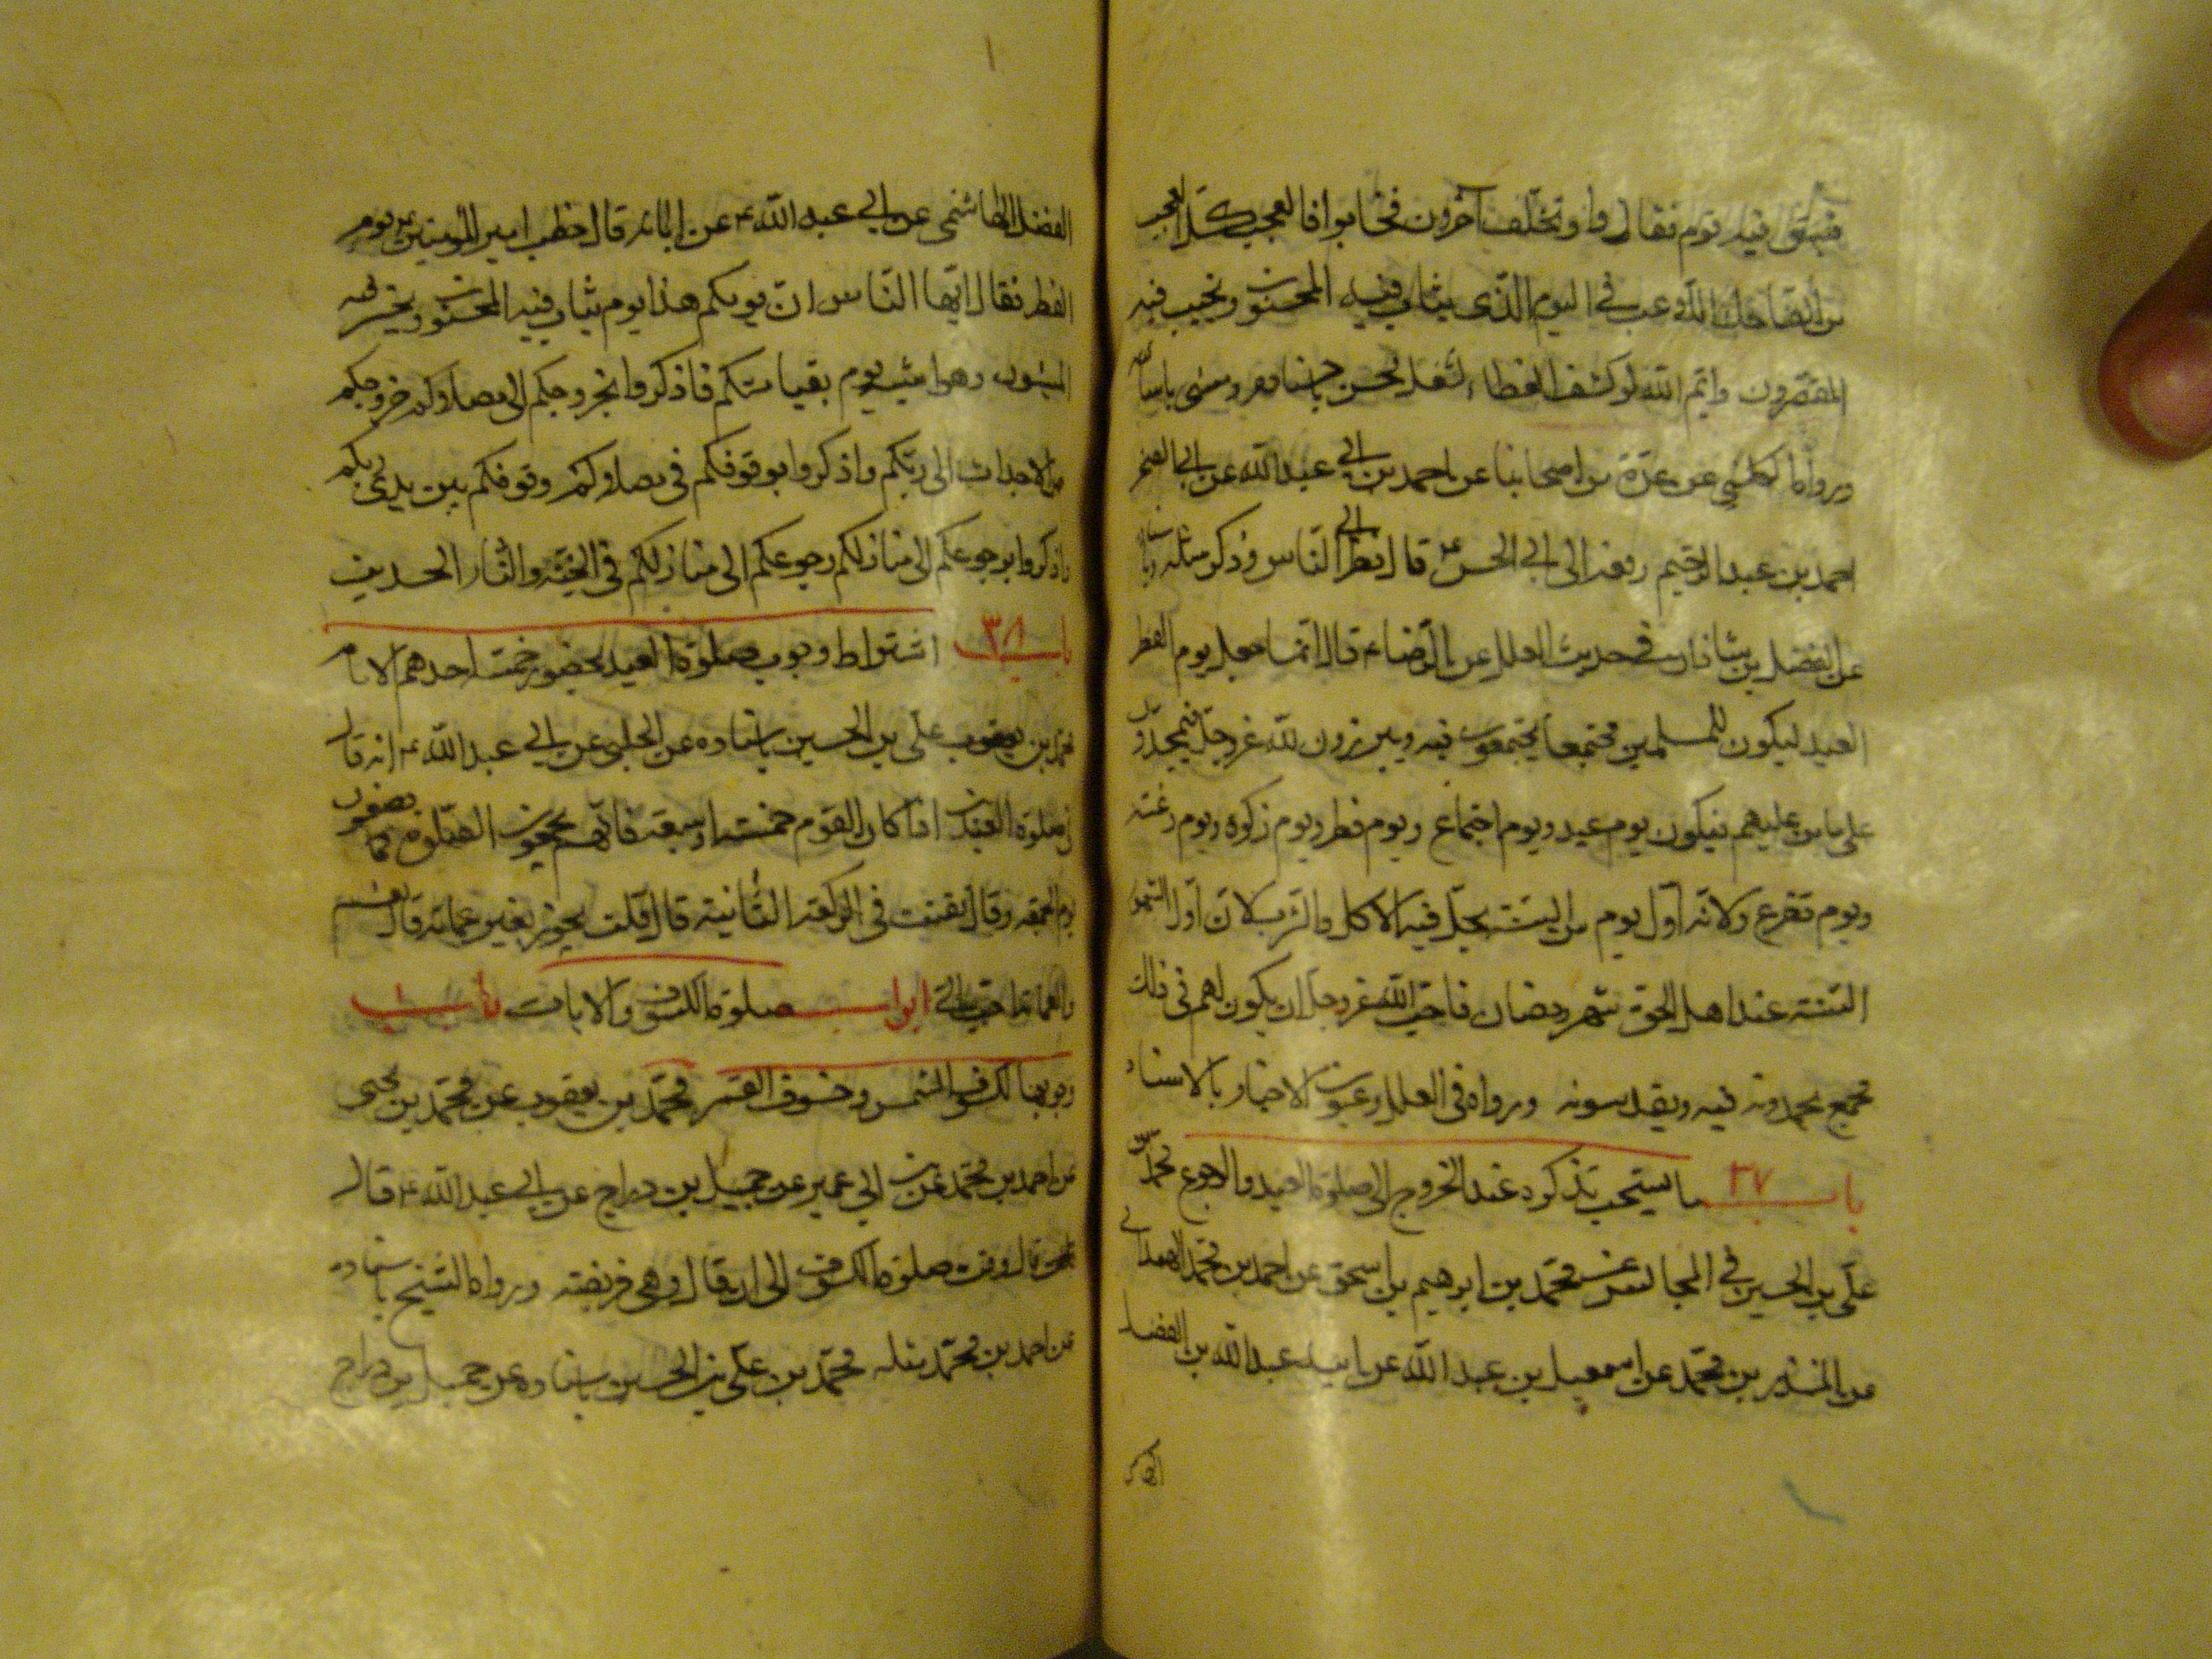 فسبق فيه قوم ففازوا وتخلف آخرون فخابوا فالعجب كل العجب
من الضاحك اللاعب في اليوم الذي يثاب فيه المحسنون ويخيب فيه
المقصرون وايم الله لو كشف الغطاء لشغل محسن باحسانه ومسيء باسائته
ورواه الكليني عن عدة من اصحابنا عن احمد بن ابي عبد الله عن ابي الصخر
احمد بن عبد الرحيم رفعه الى ابي الحسن ع قال نظر الى الناس وذكر مثله
عن الفضل بن شاذان في حديث العلل عن الرضا ع قال انما جعل يوم الفطر
العيد ليكون للمسلمين مجتمعا يجتمعون فيه ويبرزون لله عز وجل فيمجدونه
على ما من عليهم فيكون يوم عيد ويوم اجتماع ويوم فطر ويوم زكوة ويوم رغبة
ويوم تضرع ولانه اول يوم من السنة يحل فيه الاكل والشرب لان اول الشهور
السنة عند اهل الحق شهر رمضان فاحب الله عز وجل ان يكون لهم في ذلك
مجمع يحمدونه فيه ويقدسونه ورواه في العلل وعيون الاخبار بالاسناد
باب ٣٧ ما يستحب تذكره عند الخروج الى صلوة العيد والرجوع محمد بن
علي بن الحسين في المجالس عن محمد بن ابرهيم بن اسحق عن احمد بن محمد الهمداني
عن المنذر بن محمد عن اسمعيل بن عبد الله عن ابيه عبد الله بن الفضل
الفضل الهاشمي عن ابي عبد الله ع عن ابائه قال خطب امير المؤمنين ع يوم
الفطر فقال ايها الناس ان يومكم هذا يوم يثاب فيه المحسنون ويخسر فيه
المسيئون وهو اشبه يوم بقيامتكم فاذكروا بخروجكم الى مصلاكم خروجكم
من الاجداث الى ربكم واذكروا بوقوفكم في مصلاكم وقوفكم بين يدي ربكم
واذكروا برجوعكم الى منازلكم رجوعكم الى منازلكم في الجنة والنار الحديث
باب ٣٨ اشتراط وجوب صلوة العيد بحضور خمسة احدهم الامام
محمد بن علي بن الحسين باسناده عن الحلبي عن ابي عبد الله ع انه قال
في صلوة العيدين اذا كان القوم خمسة او سبعة فانهم يجمعون الصلوة كما يصنعون
يوم الجمعة وقال يقنت في الركعة الثانية قال قلت يجوز بغير عمامة قال نعم
والعمامة احب الي ابواب صلوة الكسوف والايات باب ١
وجوبها لكسوف الشمس وخسوف القمر محمد بن يعقوب عن محمد بن يحيى
عن احمد بن محمد عن ابن ابي عمير عن جميل بن دراج عن ابي عبد الله ع قال
قال وقت صلوة الكسوف الى ان قال وهي فريضة ورواه الشيخ باسناده
عن احمد بن محمد مثله محمد بن علي بن الحسين باسناده عن جميل بن دراج